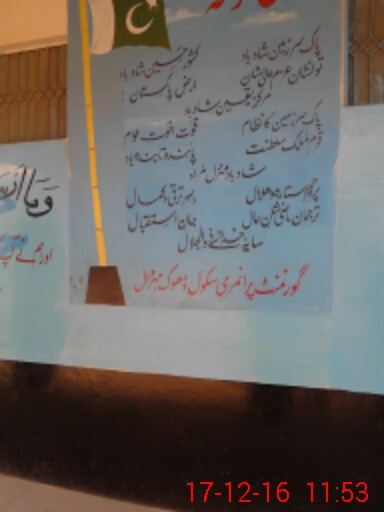 پاک سرزمین شاد باد کشور حسین شاد باد
تو نشان عزم عالی شان ارض پاکستان
مرکز یقین شاد باد
پاک سرزمین کا نظام قوت اخوت عوام
قوم ملک سلطنت پائندہ تابندہ باد
شاد باد منزل مراد
پرچم ستارہ و ہلال رہبر ترقی و کمال
ترجمان ماضی شان حال جان استقبال
سایہ خدائے ذوالجلال
گورنمنٹ پرائمری سکول ڈھوک
وما
17-12-16 11:53